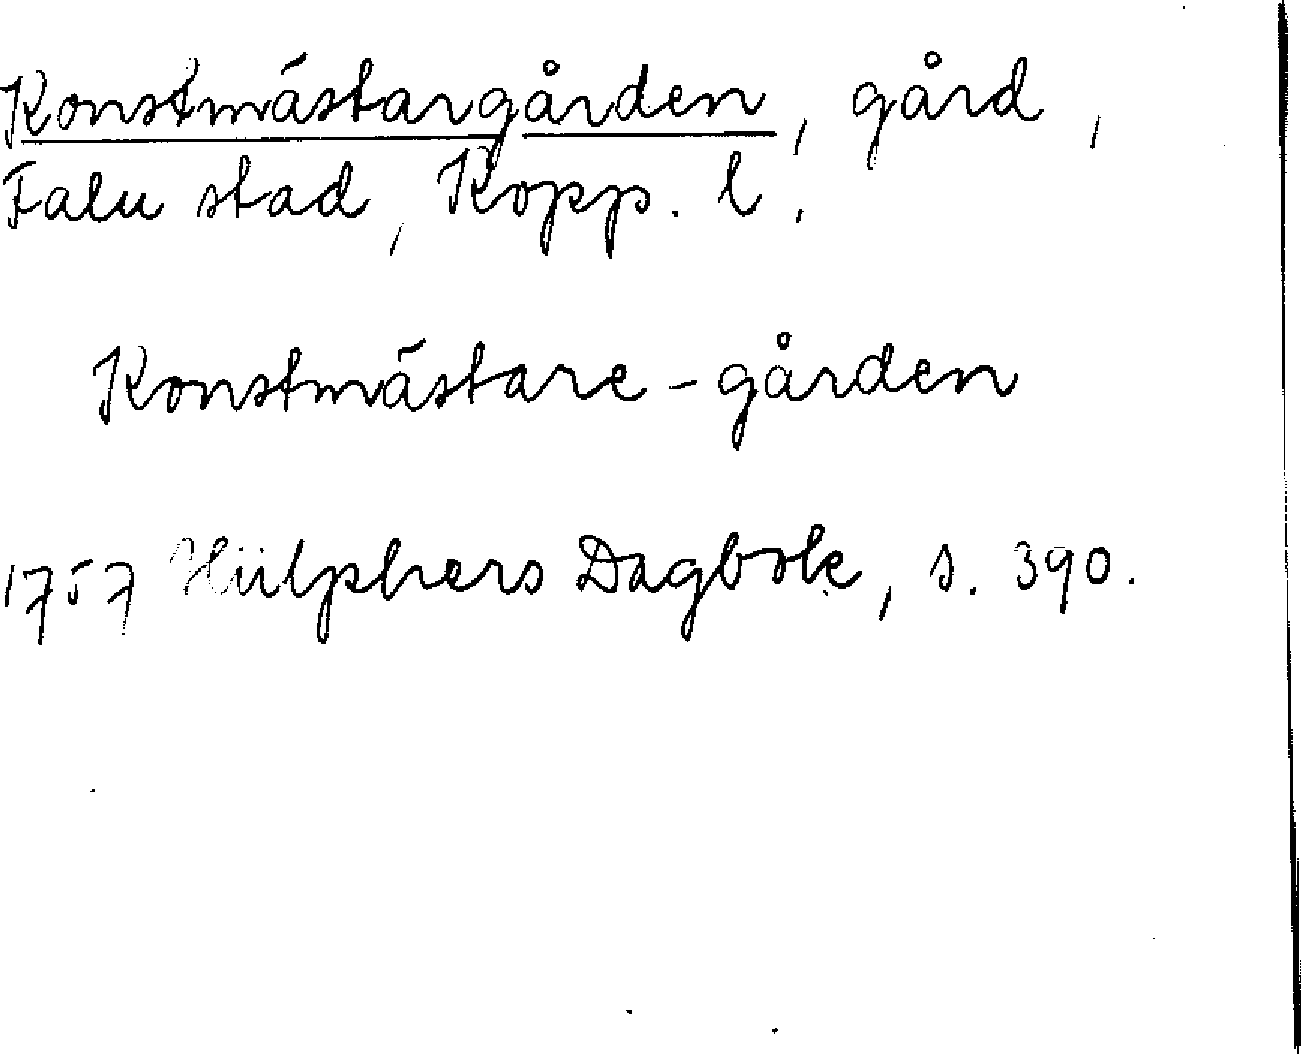 Konstmästargården, gård,
Falu stad, Kopp. l.
Konstmästare-gården
1757 Hülphers Dagbok, s. 390.